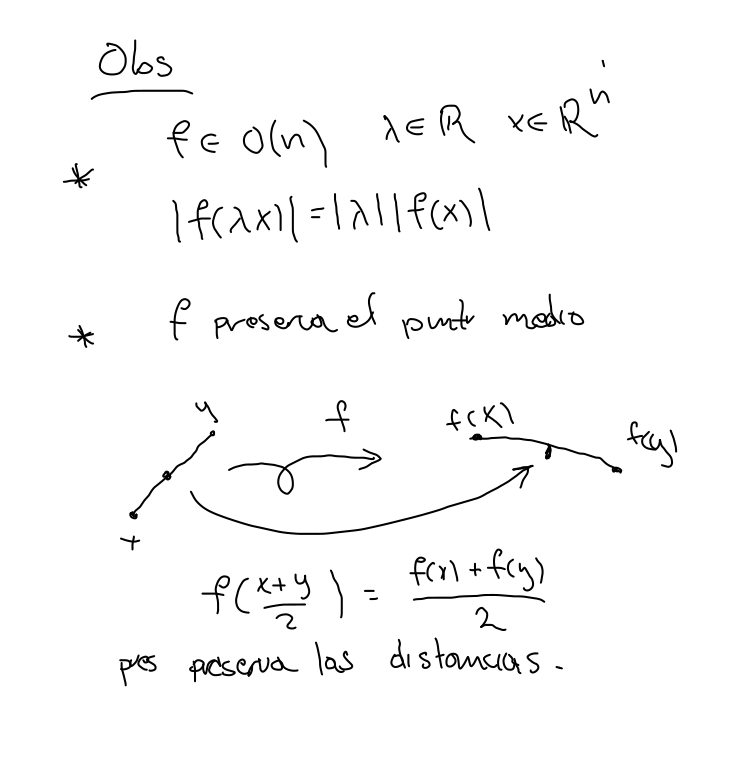 Obs
f ∈ O(n) λ ∈ ℝ x ∈ ℝⁿ
* |f(λx)| = |λ||f(x)|
* f preserva el punto medio
y f f(x) f(y)
x
f(x+y/2) = f(x)+f(y)/2
pues preserva las distancias.